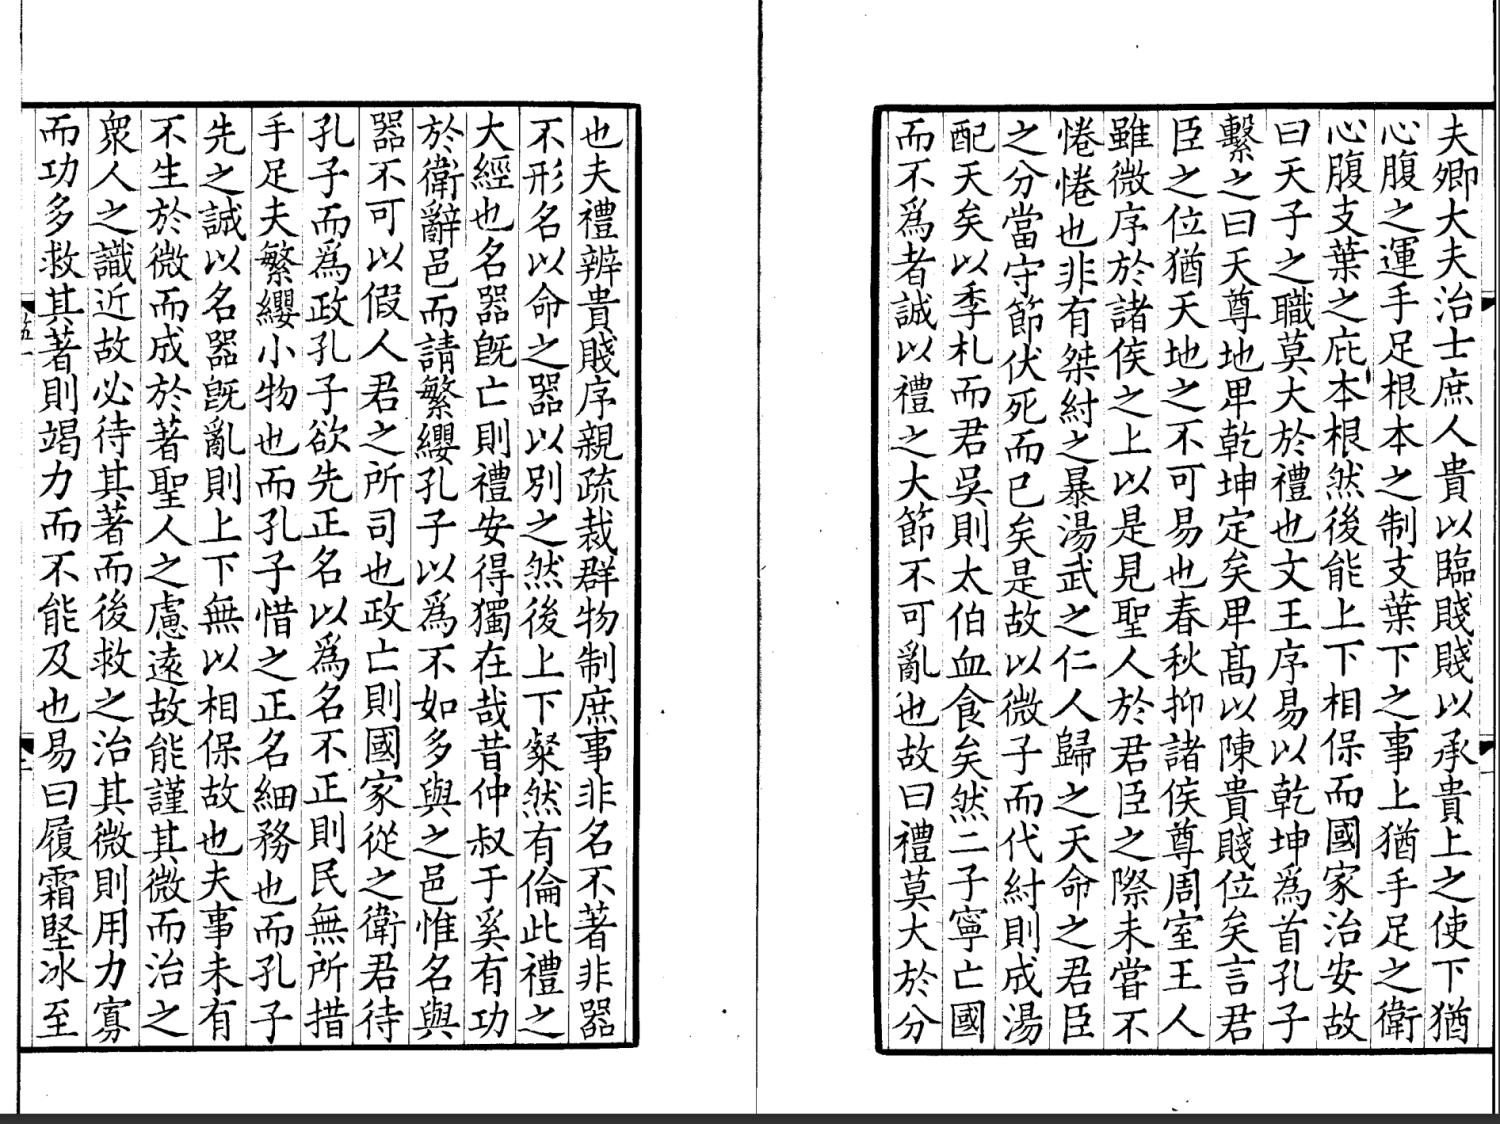 夫卿大夫治士庶人貴以臨賤賤以承貴上之使下猶
心腹之運手足根本之制支葉下之事上猶手足之衛
心腹支葉之庇本根然後能上下相保而國家治安故
曰天子之職莫大於禮也文王序易以乾坤爲首孔子
繫之曰天尊地卑乾坤定矣卑髙以陳貴賤位矣言君
臣之位猶天地之不可易也春秋抑諸侯尊周室王人
雖微序於諸侯之上以是見聖人於君臣之際未嘗不
惓惓也非有桀紂之暴湯武之仁人歸之天命之君臣
之分當守節伏死而已矣是故以微子而代紂則成湯
配天矣以季札而君吳則太伯血食矣然二子寧亡國
而不爲者誠以禮之大節不可亂也故曰禮莫大於分
也夫禮辨貴賤序親疏裁群物制庶事非名不著非器
不形名以命之器以別之然後上下粲然有倫此禮之
大經也名器既亡則禮安得獨在哉昔仲叔于奚有功
於衛辭邑而請繁纓孔子以爲不如多與之邑惟名與
器不可以假人君之所司也政亡則國家從之衛君待
孔子而爲政孔子欲先正名以爲名不正則民無所措
手足夫繁纓小物也而孔子惜之正名細務也而孔子
先之誠以名器既亂則上下無以相保故也夫事未有
不生於微而成於著聖人之慮遠故能謹其微而治之
衆人之識近故必待其著而後救之治其微則用力寡
而功多救其著則竭力而不能及也易曰履霜堅冰至